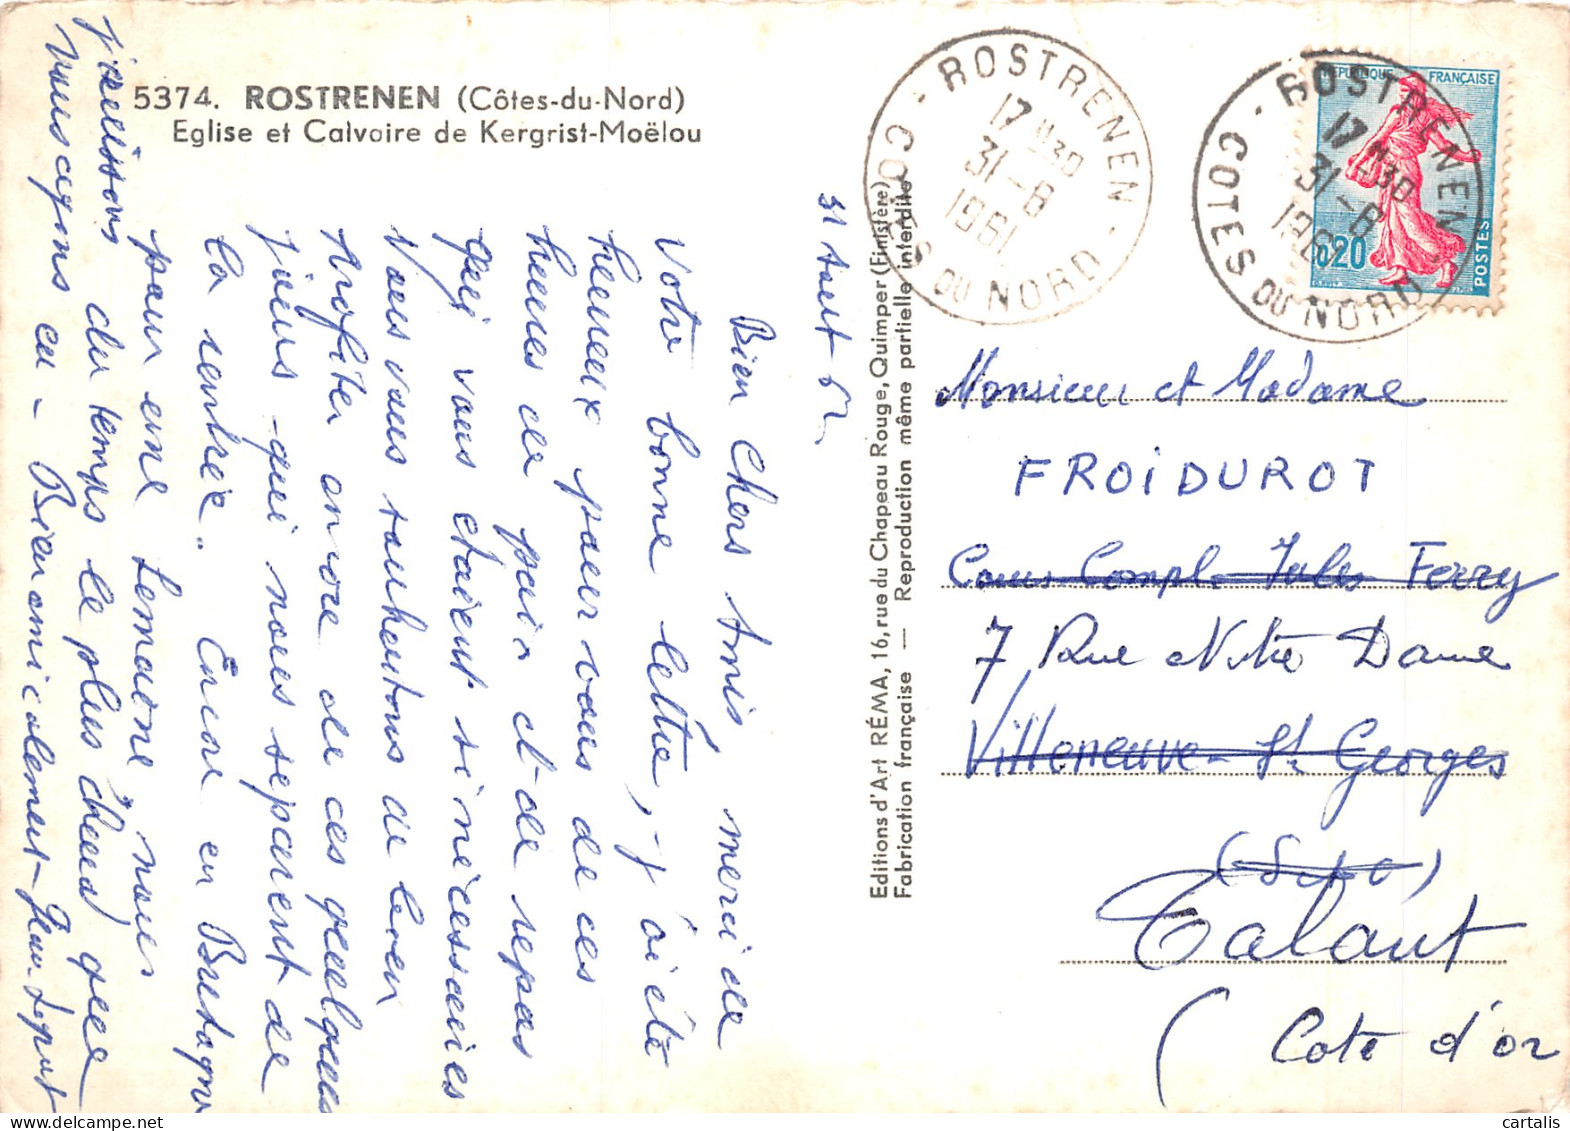 5374. ROSTRENEN (Côtes-du-Nord)
Eglise et Calvaire de Kergrist-Moëlou
31 Aout 61
Bien Chers Amis, merci de
votre bonne lettre, j'ai été
heureux pour vous de ces
heures de paix et de repos
qui vous étaient si nécessaires
Nous vous souhaitons de bien
profiter encore de ces quelques
jours qui nous séparent de
la rentrée. Encore en Bretagne
pour une semaine nous
jouissons du temps le plus chaud que
nous ayons eu - Bien amicalement
Editions d'Art RÉMA, 16, rue du Chapeau Rouge, Quimper (Finistère)
Fabrication française — Reproduction même partielle interdite
ROSTRENEN
17 H30
31-8
1961
COTES DU NORD
ROSTRENEN
17 H30
31-8
COTES DU NORD
REPUBLIQUE FRANÇAISE
0,20
POSTES
Monsieur et Madame
FROIDUROT
Cours Compl. Jules Ferry
7 Rue Notre Dame
Villeneuve St Georges
(S. et O)
Talant
(Cote d'or
cartalis.com